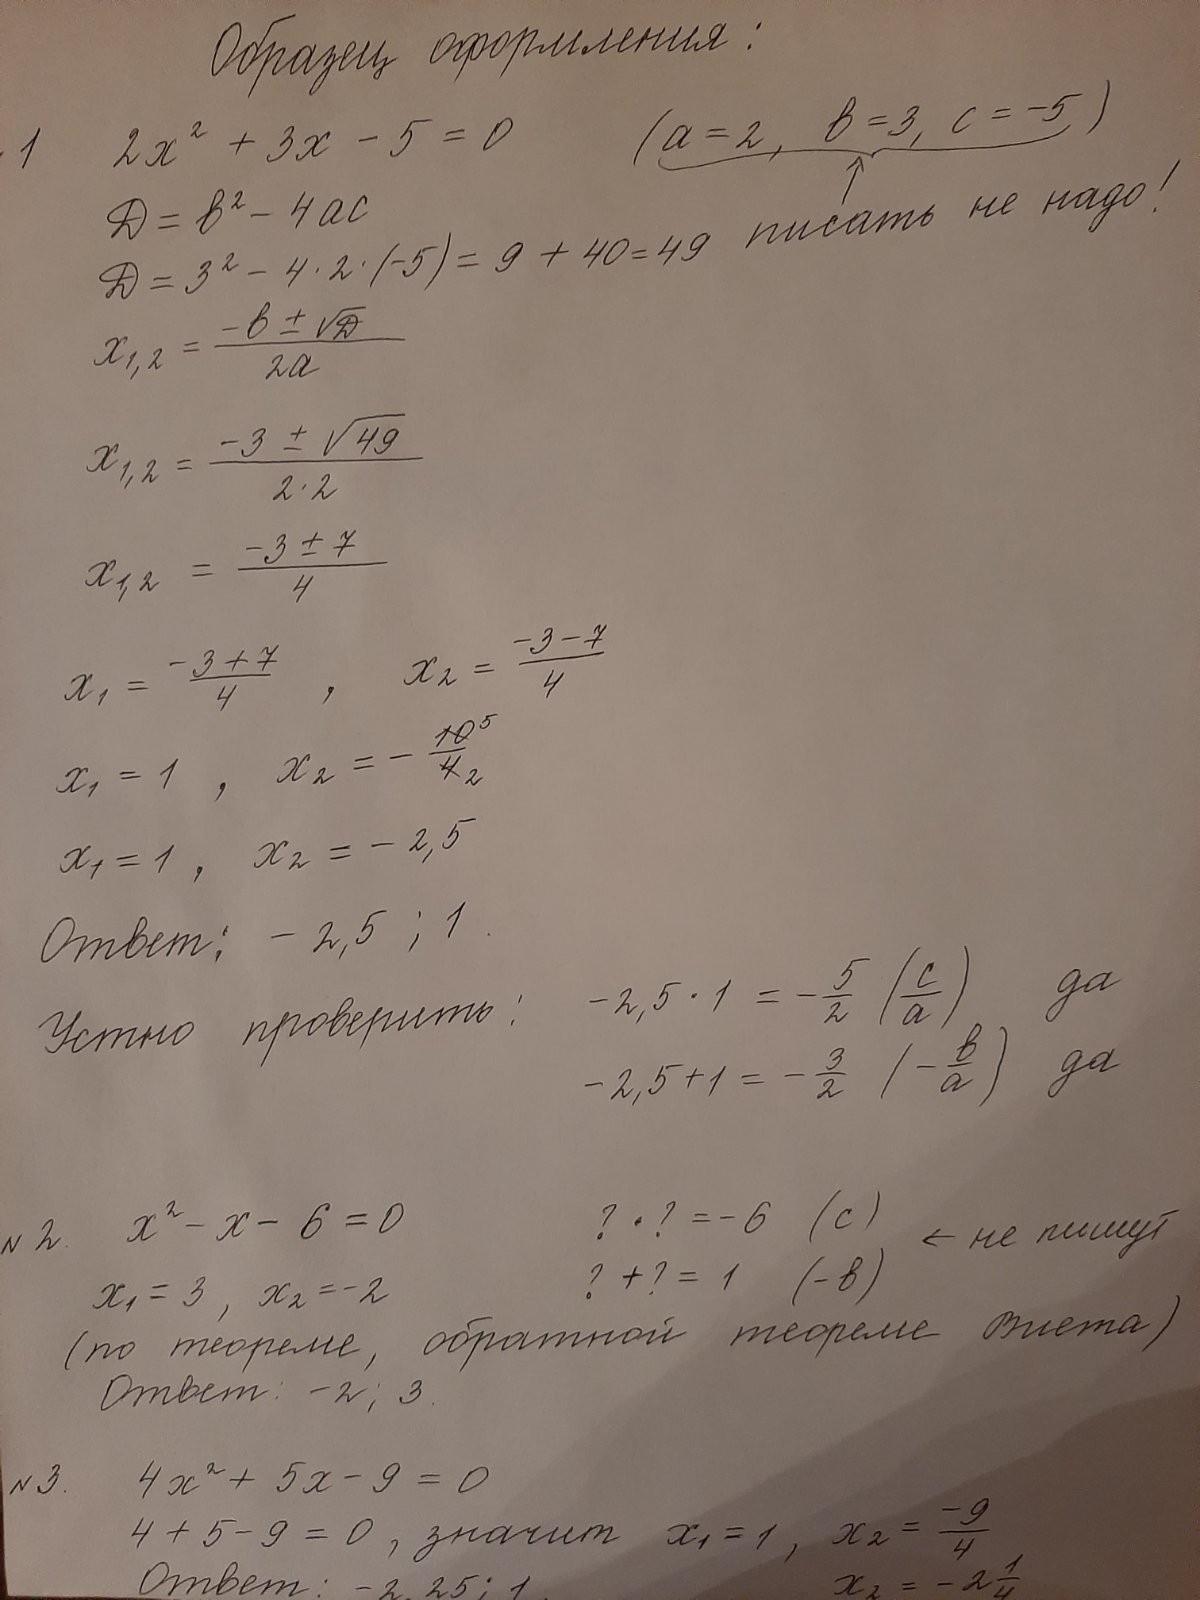 Образец оформления:
1 2x² + 3x - 5 = 0 (a = 2, в = 3, c = -5)
D = в² - 4ac писать не надо!
D = 3² - 4·2·(-5) = 9 + 40 = 49
x₁,₂ = (-в ± √D)/(2a)
x₁,₂ = (-3 ± √49)/(2·2)
x₁,₂ = (-3 ± 7)/4
x₁ = (-3+7)/4 , x₂ = (-3-7)/4
x₁ = 1 , x₂ = - 10⁵/4₂
x₁ = 1 , x₂ = - 2,5
Ответ: - 2,5 ; 1.
Устно проверить: -2,5 · 1 = - 5/2 (c/a) да
-2,5 + 1 = - 3/2 (- в/a) да
№2. x² - x - 6 = 0 ? · ? = -6 (c)
x₁ = 3 , x₂ = -2 ? + ? = 1 (-в) ← не пишут
(по теореме, обратной теореме Виета)
Ответ: -2; 3.
№3. 4x² + 5x - 9 = 0
4 + 5 - 9 = 0 , значит x₁ = 1 , x₂ = -9/4
Ответ: -2,25; 1. x₂ = -2 1/4